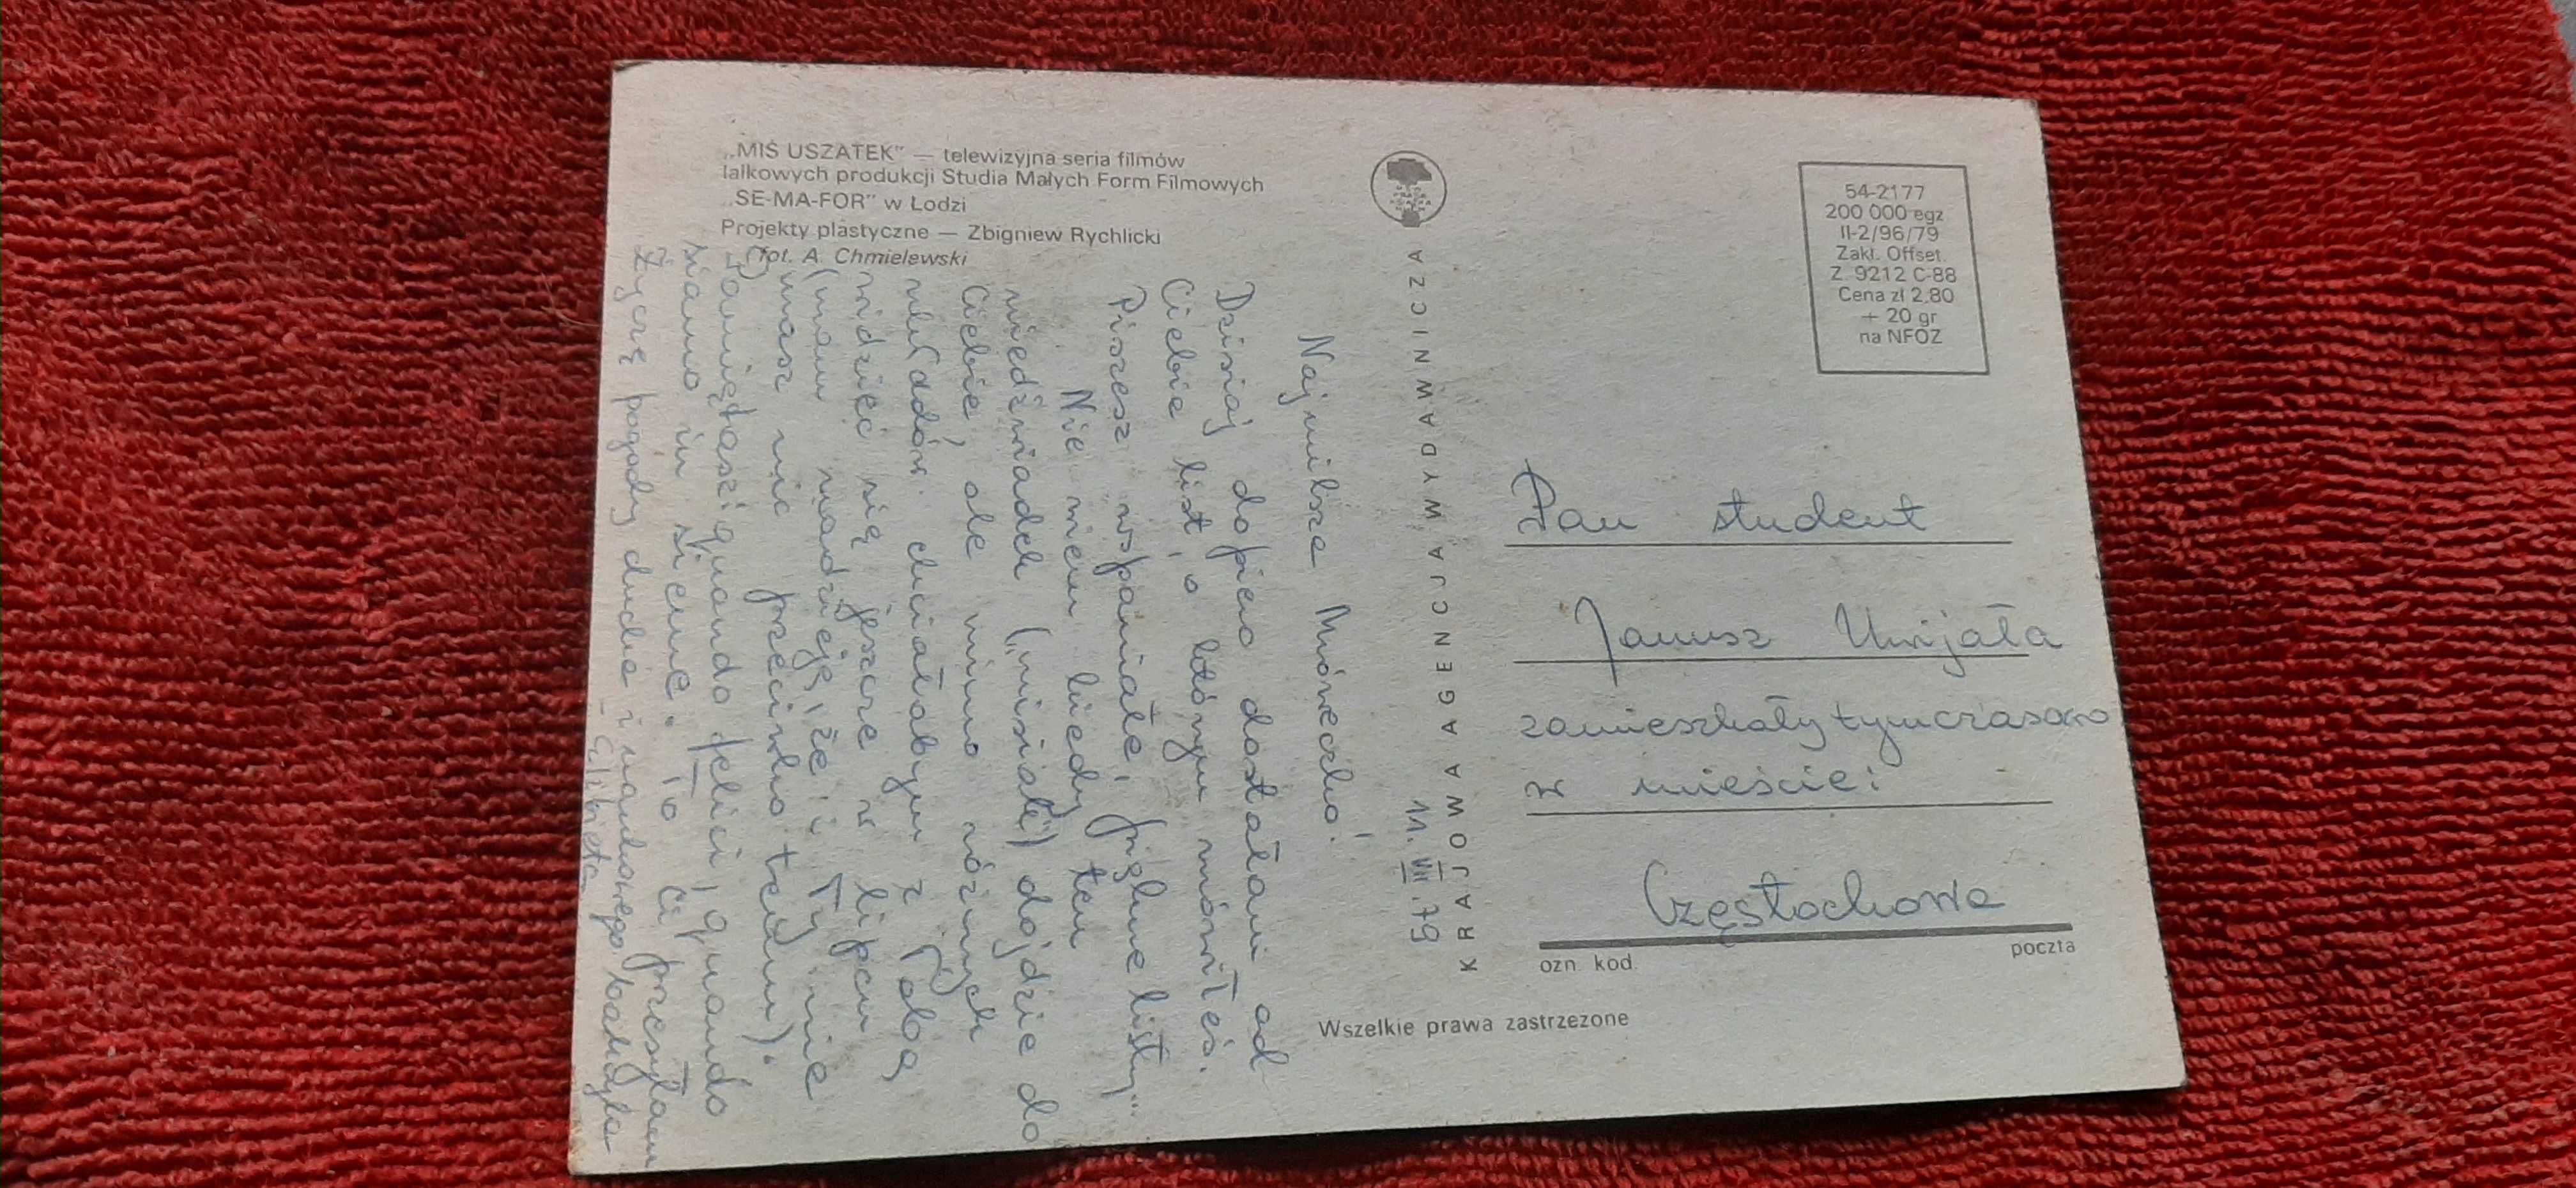 „MIŚ USZATEK” — telewizyjna seria filmów
lalkowych produkcji Studia Małych Form Filmowych
„SE-MA-FOR” w Łodzi
Projekty plastyczne — Zbigniew Rychlicki
fot. A. Chmielewski
11. III
Najmilsza Mróweczko!
Dzisiaj dopiero dostałam od
Ciebie list, o którym mówiłeś.
Piszesz wspaniałe, piękne listy...
Nie wiem kiedy ten
niedźwiadek („misiak”) dojdzie do
Ciebie, ale mimo różnych
chciałabym z Tobą
widzieć się jeszcze w lipcu
(mam nadzieję, że i Ty nie
masz nic przeciwko temu).
Pamiętasz: quando felici, quando
siamo insieme. To Ci przesyłam
Życzę pogody ducha i
Elżbieta
KRAJOWA AGENCJA WYDAWNICZA
54-2177
200 000 egz
II-2/96/79
Zakł. Offset.
Z. 9212 C-88
Cena zł 2,80
+ 20 gr
na NFOZ
Pan student
Janusz
zamieszkały tymczasowo
w mieście:
Częstochowa
ozn. kod.
poczta
Wszelkie prawa zastrzeżone